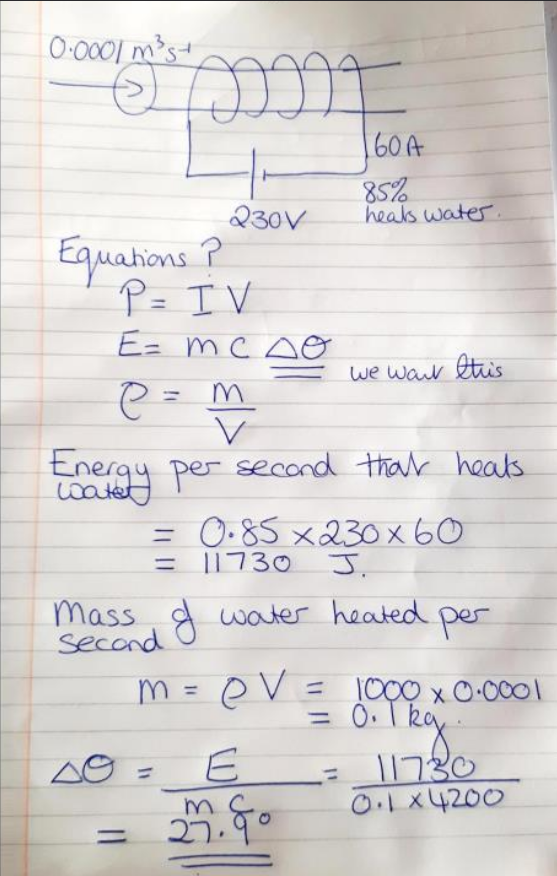 0.0001 m³s⁻¹
60A
85%
heats water.
230V
Equations?
P = IV
E = mcΔθ
we want this
ρ = m/V
Energy per second that heats
water
= 0.85 × 230 × 60
= 11730 J.
Mass of water heated per
second
m = ρV = 1000 × 0.0001
= 0.1 kg.
Δθ = E/mc = 11730/0.1 × 4200
= 27.9°